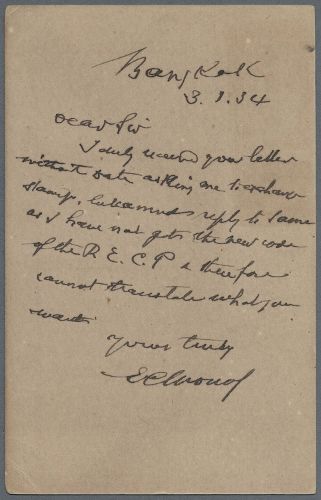 Bangkok
3.1.34
Dear Sir
I duly received your letter
without date asking me to exchange
stamps, but cannot reply to same
as I have not got the new code
of the R. E. C. P & therefore
cannot translate what you
want.
Yours truly